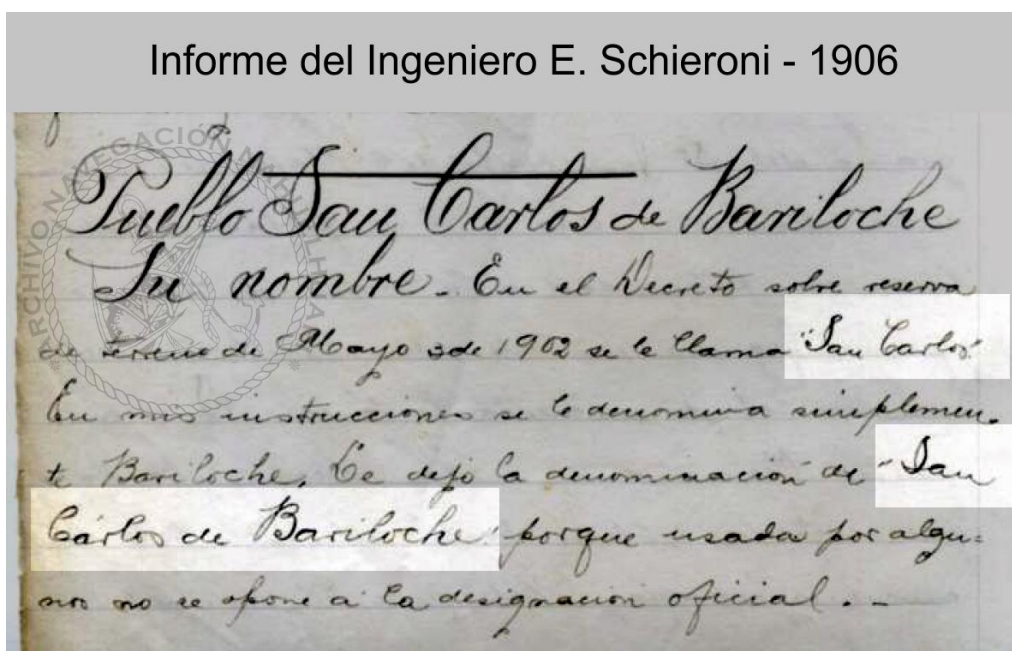 Informe del Ingeniero E. Schieroni - 1906
Pueblo San Carlos de Bariloche
Su nombre. En el Decreto sobre reserva
de terreno de Mayo 3 de 1902 se le llama "San Carlos"
En mis instrucciones se le denomina simplemen-
te Bariloche. Le dejo la denominación de "San
Cárlos de Bariloche" porque usada por algu=
nos no se opone á la designacion oficial. _
ARCHIVO NAVEGACIÓN